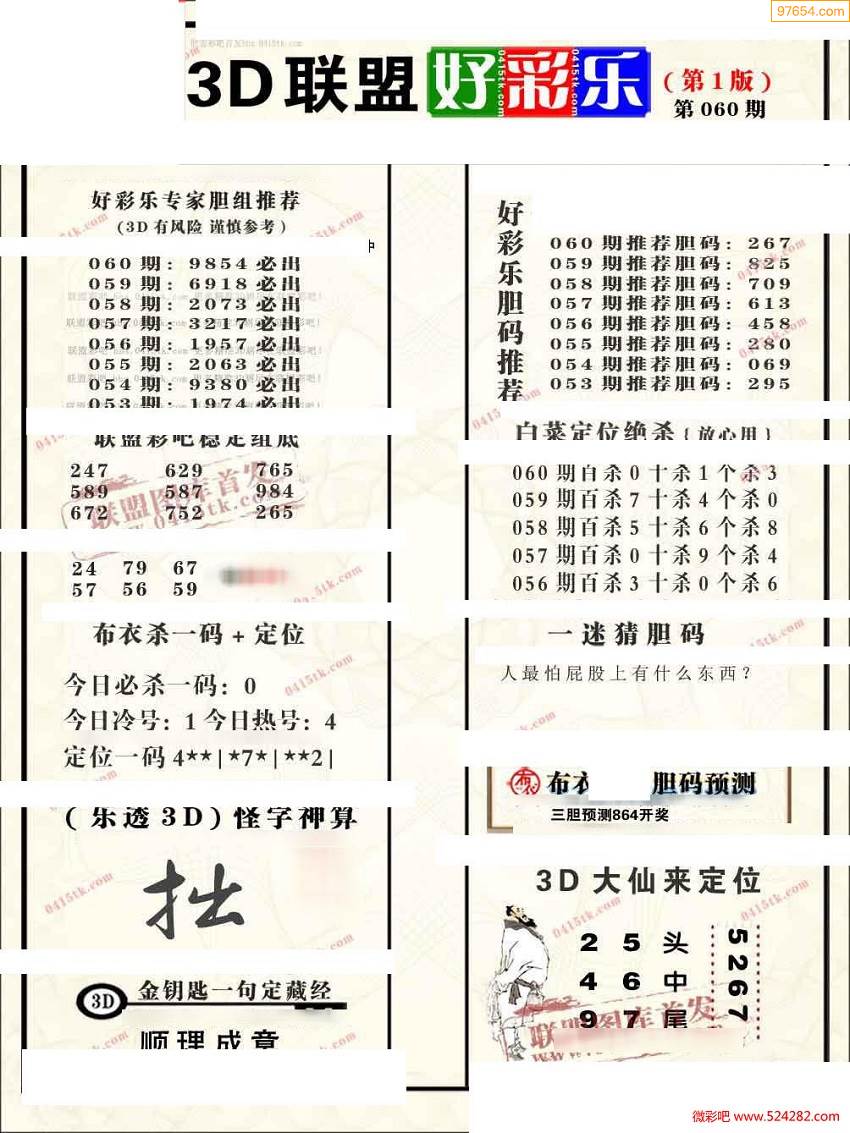 97654.com
3D联盟好彩乐
(第1版)
第060期
好彩乐专家胆组推荐
(3D有风险 谨慎参考)
060期: 9854必出
059期: 6918必出
058期: 2073必出
057期: 3217必出
056期: 1957必出
055期: 2063必出
054期: 9380必出
053期: 1974必出
联盟彩吧稳定组底
247 629 765
589 587 984
672 752 265
24 79 67
57 56 59
布衣杀一码+定位
今日必杀一码: 0
今日冷号: 1 今日热号: 4
定位一码 4**|*7*|**2|
(乐透3D)怪字神算
拙
3D 金钥匙一句定藏经
顺理成章
好彩乐胆码推荐
060期推荐胆码: 267
059期推荐胆码: 825
058期推荐胆码: 709
057期推荐胆码: 613
056期推荐胆码: 458
055期推荐胆码: 280
054期推荐胆码: 069
053期推荐胆码: 295
白菜定位绝杀{放心用}
060期百杀0十杀1个杀3
059期百杀7十杀4个杀0
058期百杀5十杀6个杀8
057期百杀0十杀9个杀4
056期百杀3十杀0个杀6
一迷猜胆码
人最怕屁股上有什么东西?
布衣 胆码预测
三胆预测864开奖
3D大仙来定位
2 5 头
4 6 中
9 7 尾
5267
联盟图库首发
www.0415tk.com
微彩吧 www.524282.com